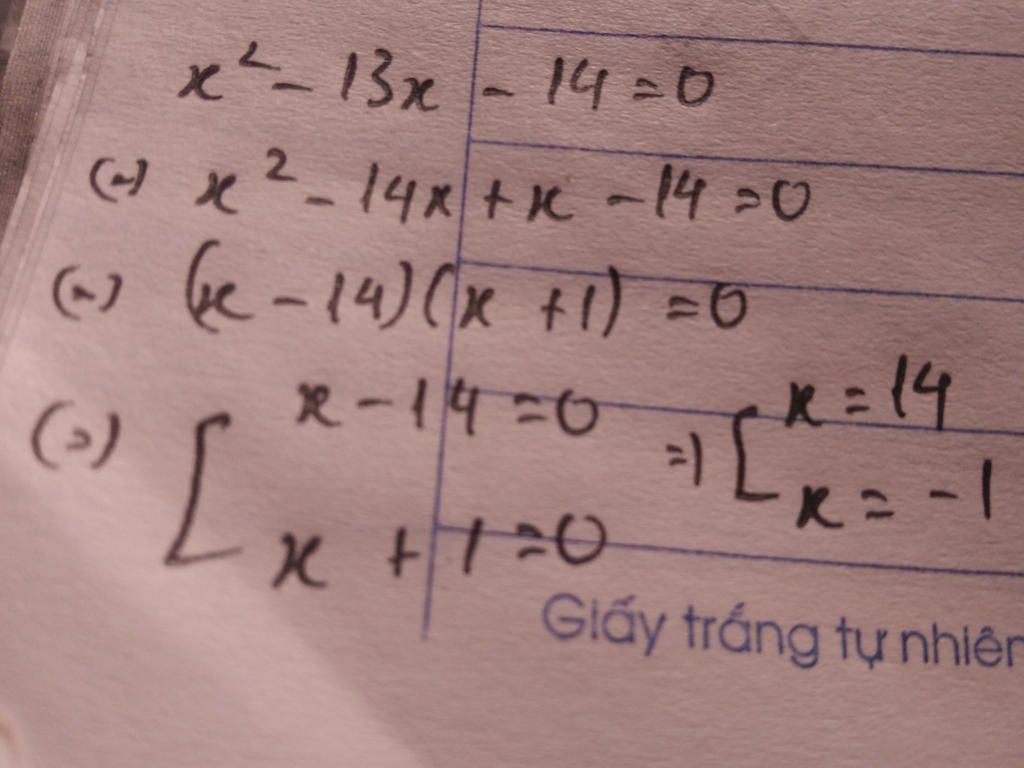 x² - 13x - 14 = 0
(=) x² - 14x + x - 14 = 0
(=) (x - 14)(x + 1) = 0
(=) [ x - 14 = 0 => [ x = 14
x + 1 = 0 x = -1
Giấy trắng tự nhiên